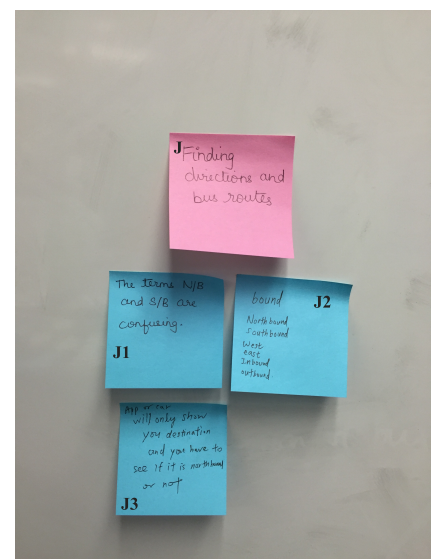 J
Finding
directions and
bus routes
The terms N/B
and S/B are
confusing.
J1
bound J2
Northbound
Southbound
West
east
Inbound
outbound.
App or car
will only show
you destination
and you have to
see if it is northbound
or not
J3